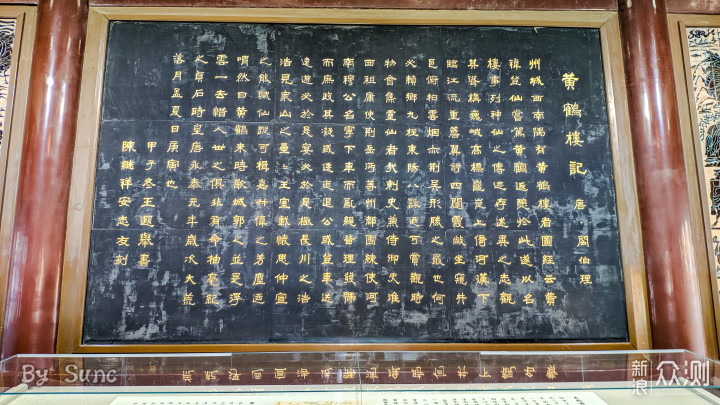 黄鶴樓記 唐 閻伯理
州城西南隅有黄鶴樓者圖經云費
禕登仙嘗駕黄鶴返憩於此遂以名
樓事列神仙之傳迹存述異之志觀
其聳構巍峨高標巃嵸上倚河漢下
臨江流重簷翼舒四闥霞敞坐窺井
邑俯拍雲烟亦荆吴形勝之最也何
必賴鄉九柱東陽八詠乃可賞觀時
物會集靈仙者哉刺史兼侍御史淮
西租庸使荆岳沔等州都團練使河
南穆公名寧下車而亂繩皆理發號
而庶政其凝或逶迤退公或登車送
遠遊必於是宴必於是極長川之浩
浩見衆山之纍纍王室載懷思仲宣
之能賦仙蹤可揖嘉叔偉之芳塵迺
喟然曰黄鶴來時歌城郭之並是浮
雲一去惜人世之俱非有命抽毫紀
之貞石時皇唐永泰元年歲次大荒
落月孟夏日庚寅也
甲子冬王遐舉書
陳继祥安志友刻
By Sunc
新浪众测